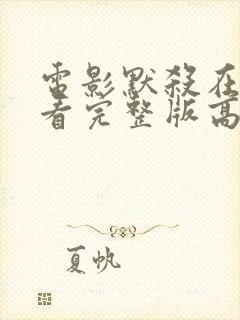 雷影默殺在
看完整版高
夏帆